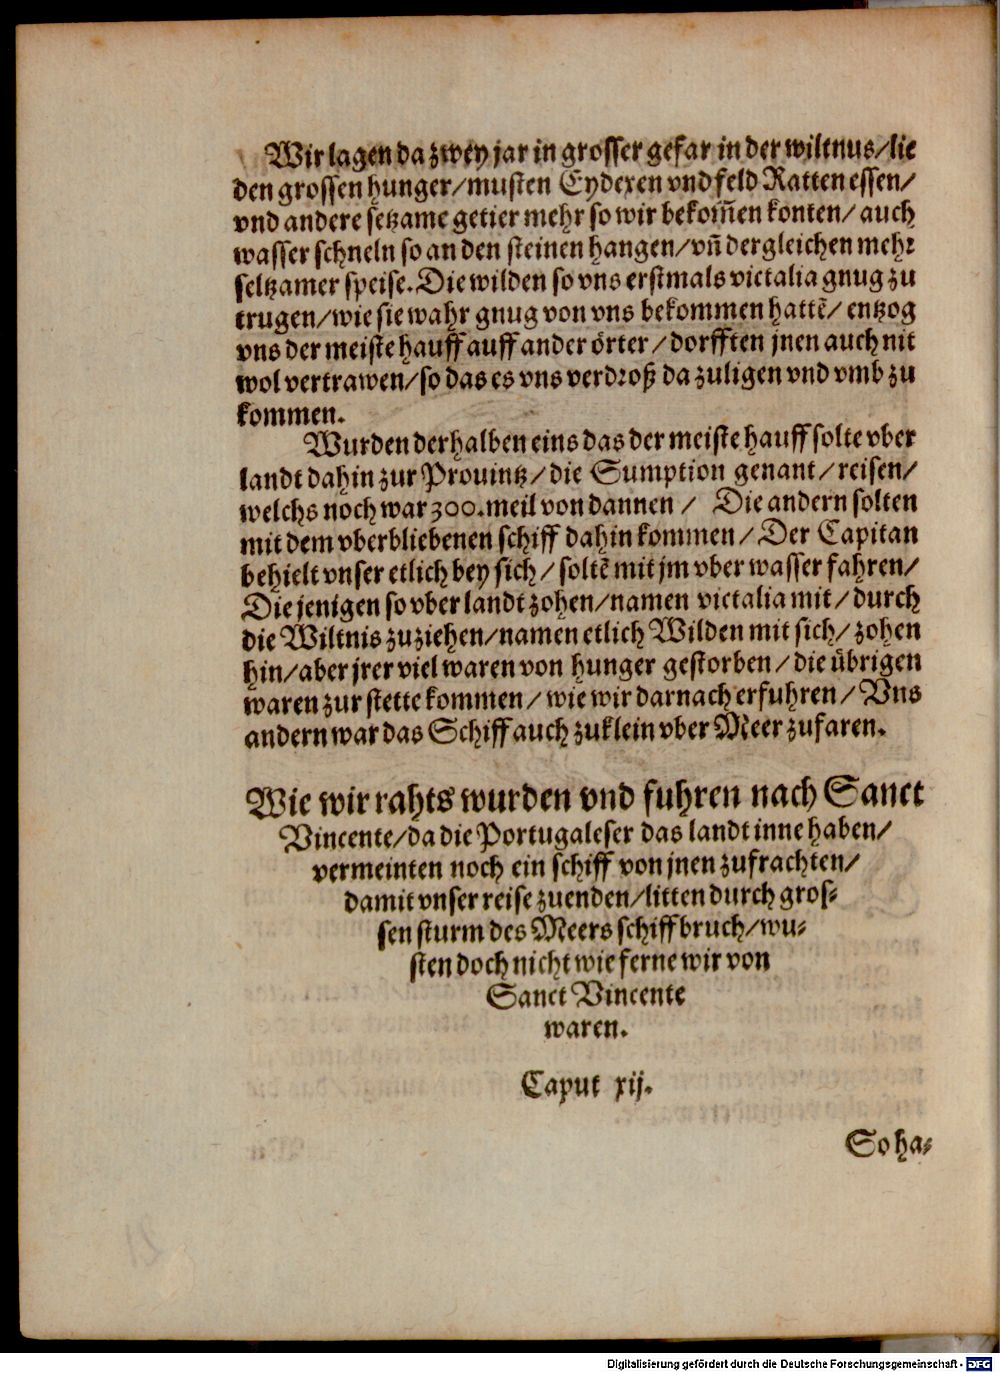 Wir lagen da zwey jar in grosser gefar in der wiltnus/lie
den grossen hunger/musten Eydexen vnd feld Ratten essen/
vnd andere setzame getier mehr so wir bekom̃en konten/ auch
wasser schneln so an den steinen hangen/vñ dergleichen mehr
seltzamer speise. Die wilden so vns erstmals victalia gnug zu
trugen/wie sie wahr gnug von vns bekommen hattẽ/ entzog
vns der meiste hauff auff ander örter/dorfften jnen auch nit
wol vertrawen/so das es vns verdroß da zuligen vnd vmb zu
kommen.
Wurden derhalben eins das der meiste hauff solte vber
landt dahin zur Prouintz/die Sumption genant/reisen/
welchs noch war 300.meil von dannen / Die andern solten
mit dem vberbliebenen schiff dahin kommen/ Der Capitan
behielt vnser etlich bey sich/soltẽ mit jm vber wasser fahren/
Die jenigen so vber landt zohen/namen victalia mit/durch
die Wiltnis zuziehen/namen etlich Wilden mit sich/ zohen
hin/aber jrer viel waren von hunger gestorben/die übrigen
waren zur stette kommen/ wie wir darnach erfuhren/ Vns
andern war das Schiff auch zuklein vber Meer zufaren.
Wie wir rahts wurden vnd fuhren nach Sanct
Vincente/da die Portugaleser das landt inne haben/
vermeinten noch ein schiff von jnen zufrachten/
damit vnser reise zuenden/litten durch gros⸗
sen sturm des Meers schiffbruch/wu⸗
sten doch nicht wie ferne wir von
Sanct Vincente
waren.
Caput xij.
So ha⸗
Digitalisierung gefördert durch die Deutsche Forschungsgemeinschaft - DFG